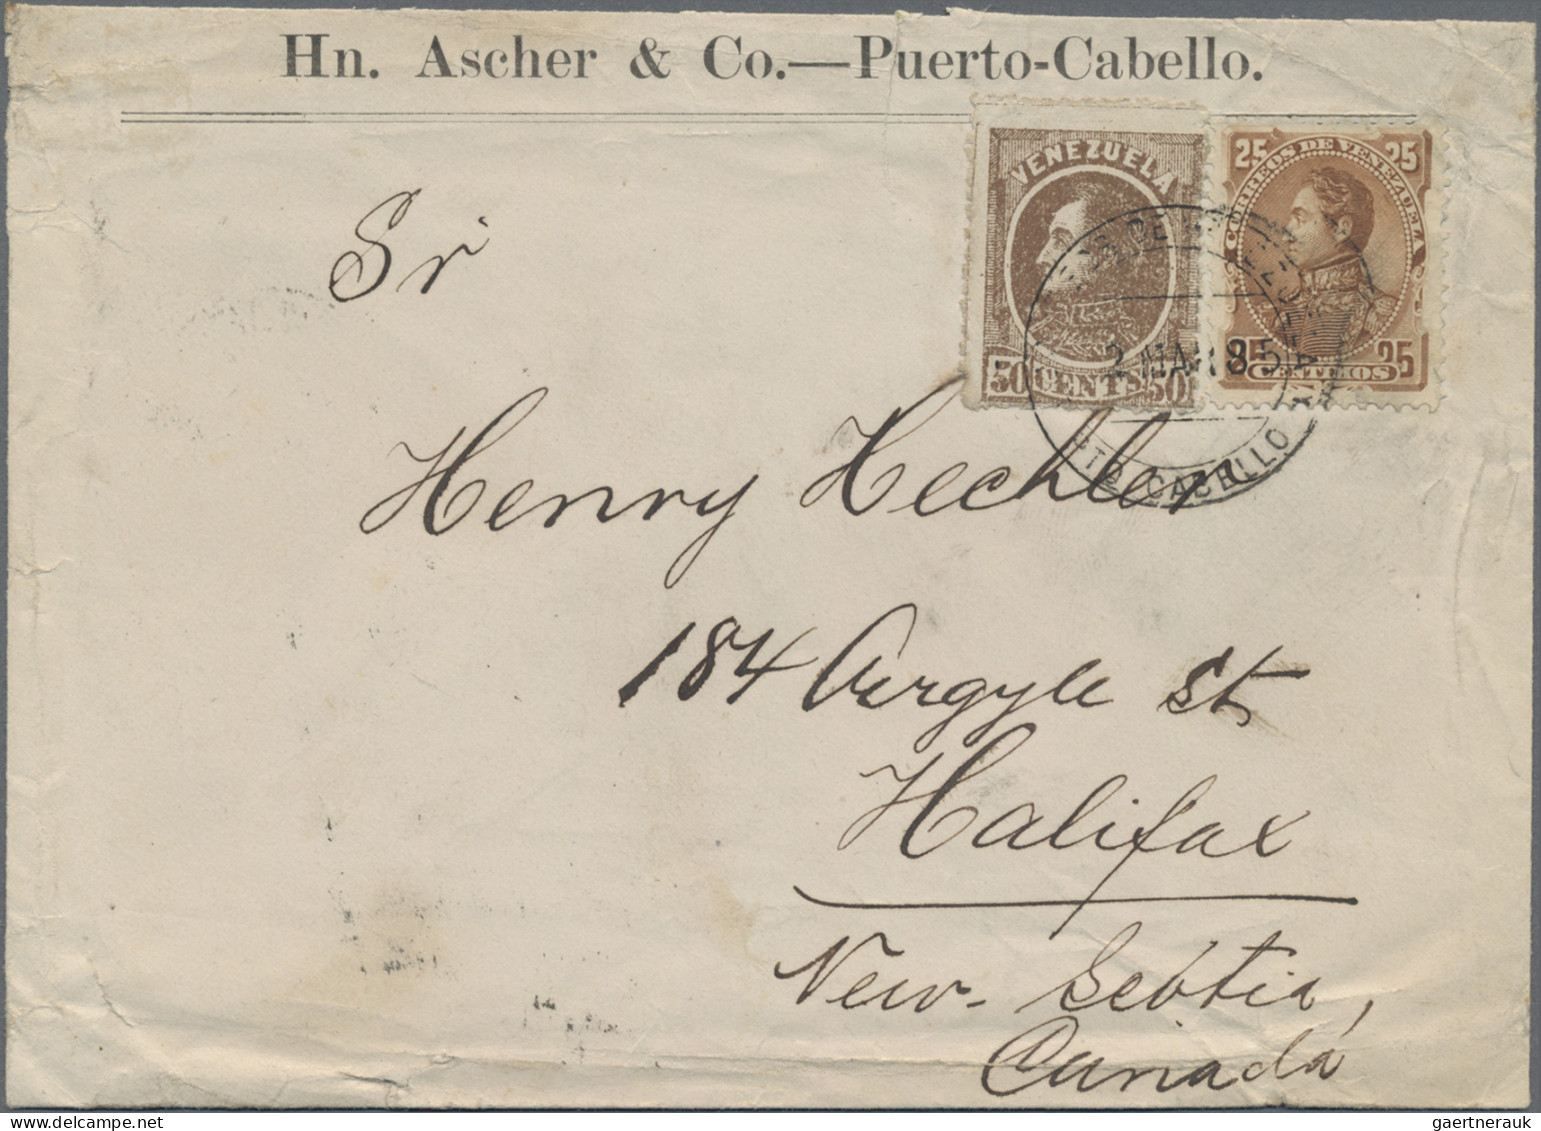 Hn. Ascher & Co.—Puerto-Cabello.
VENEZUELA
50 CENTS 50
25 25
CORREOS DE VENEZUELA
25 CENTIMOS 25
2 MAR 85
PTO CABELLO
Sr
Henry Hechler
184 Argyle St
Halifax
New-Scotia,
Canada
gaertnerauk @ delcampe.net